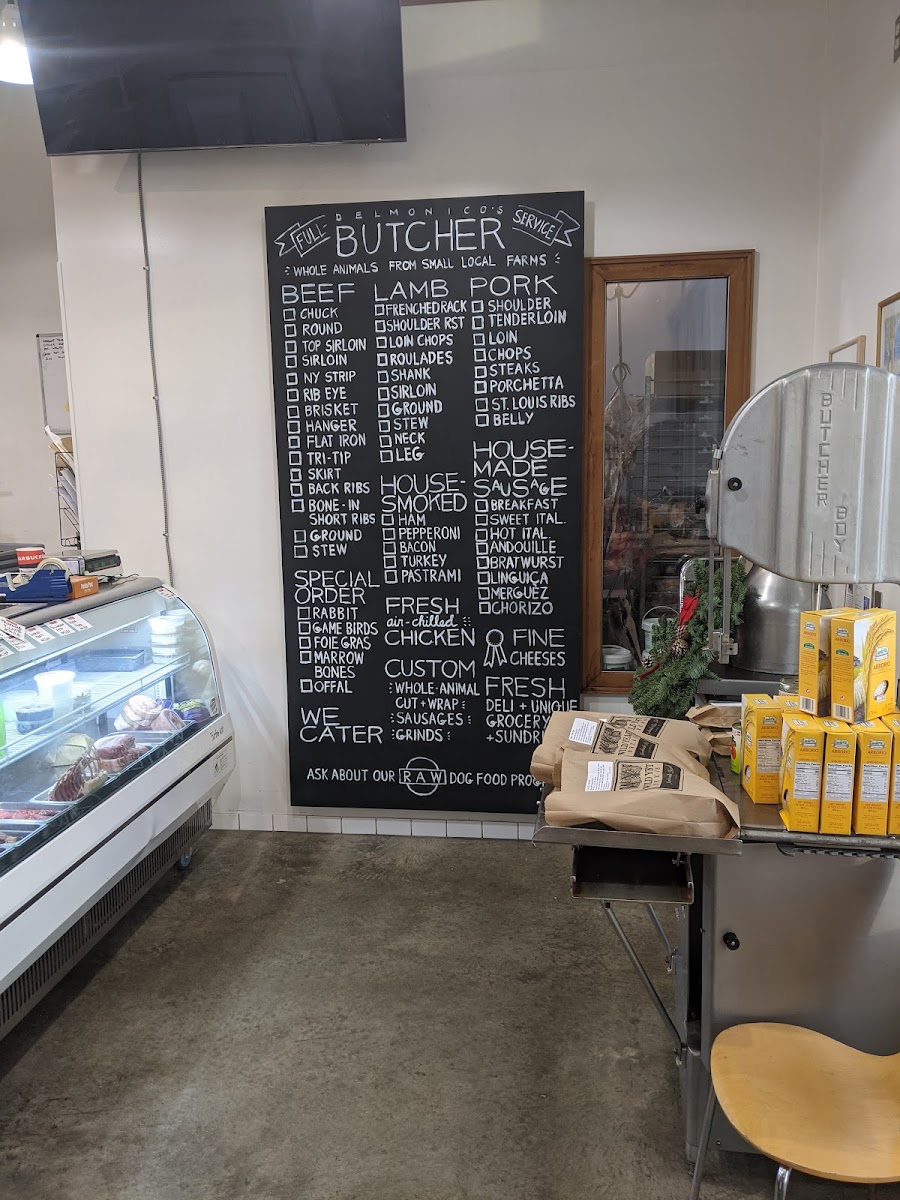 DELMONICO'S
FULL
BUTCHER
SERVICE
WHOLE ANIMALS FROM SMALL LOCAL FARMS
BEEF
CHUCK
ROUND
TOP SIRLOIN
SIRLOIN
NY STRIP
RIB EYE
BRISKET
HANGER
FLAT IRON
TRI-TIP
SKIRT
BACK RIBS
BONE-IN
SHORT RIBS
GROUND
STEW
SPECIAL
ORDER
RABBIT
GAME BIRDS
FOIE GRAS
MARROW
BONES
OFFAL
WE
CATER
LAMB
FRENCHED RACK
SHOULDER RST
LOIN CHOPS
ROULADES
SHANK
SIRLOIN
GROUND
STEW
NECK
LEG
HOUSE-
SMOKED
HAM
PEPPERONI
BACON
TURKEY
PASTRAMI
FRESH
air-chilled
CHICKEN
CUSTOM
WHOLE-ANIMAL
CUT + WRAP
SAUSAGES
GRINDS
PORK
SHOULDER
TENDERLOIN
LOIN
CHOPS
STEAKS
PORCHETTA
ST. LOUIS RIBS
BELLY
HOUSE-
MADE
SAUSAGE
BREAKFAST
SWEET ITAL.
HOT ITAL.
ANDOUILLE
BRATWURST
LINGUIÇA
MERGUEZ
CHORIZO
FINE
CHEESES
FRESH
DELI + UNIQUE
GROCERY
+ SUNDRI
ASK ABOUT OUR RAW DOG FOOD PROG
BUTCHER BOY
ARBORIO
ARBORIO
ARBORIO
ARBORIO